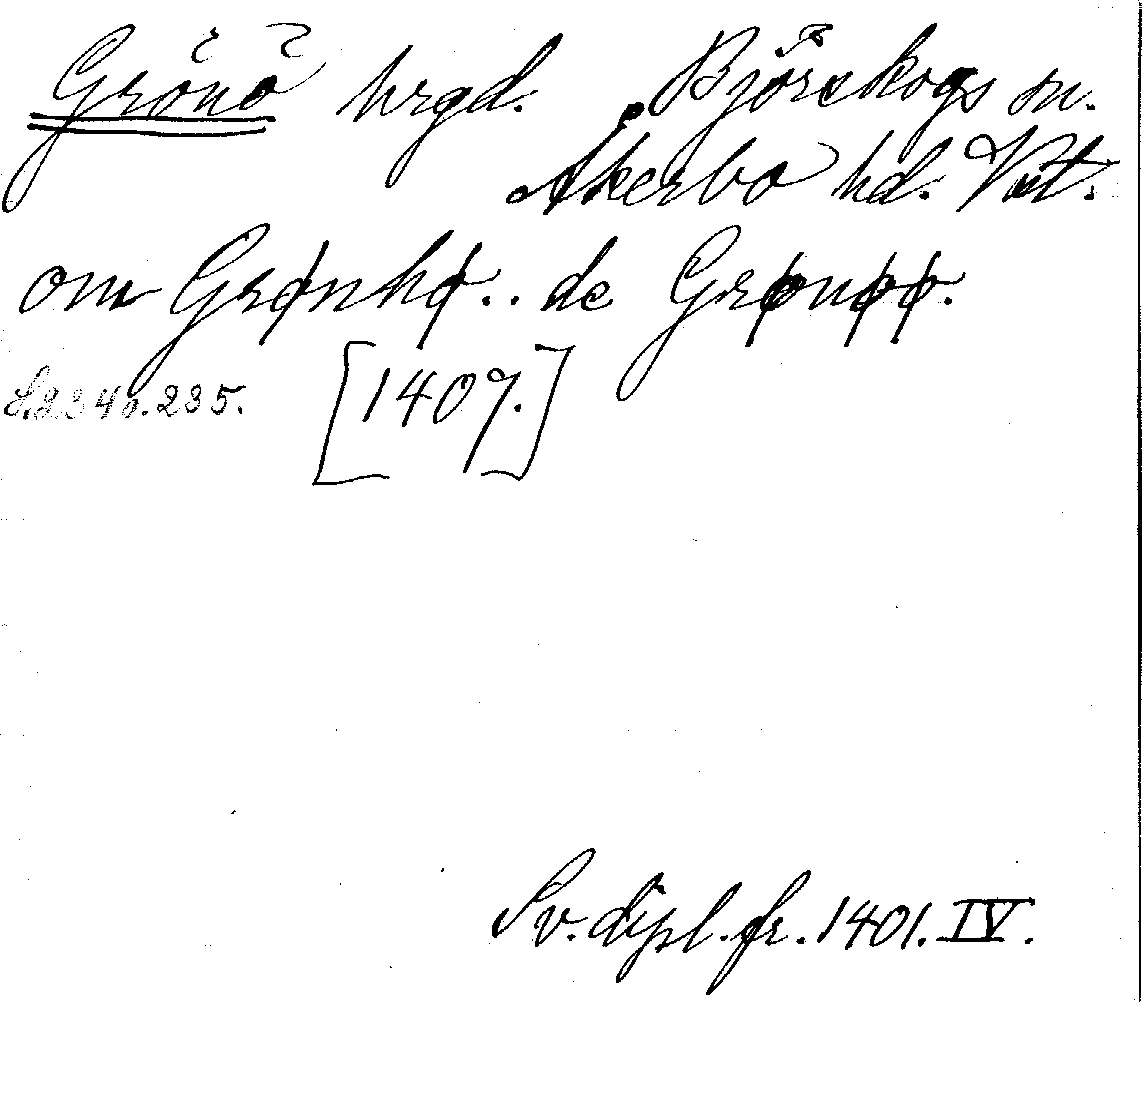 Grönö hrgd. Björskogs sn.
Åkerbo hd. Vst.
om Grønhø.. de Grønøø.
S. 234 o. 235. [1407.]
Sv. dipl. fr. 1401. IV.